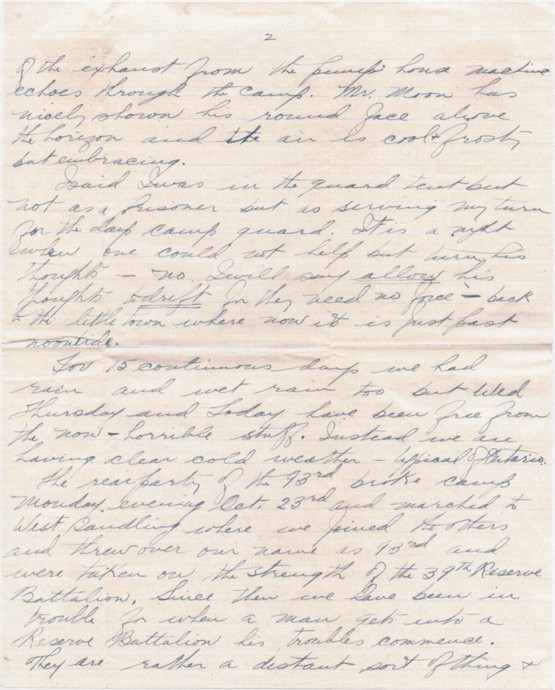 2
of the exhaust from the pump house machine
echoes through the camp. Mr. Moon has
nicely shown his round face above
the horizon and the air is cool & frosty
but embracing.
I said I was in the guard tent but
not as a prisoner but as serving my turn
for the day camp guard. It is a night
when one could not help but turn his
thoughts – no, I will say allow his
thoughts to drift for they need no force – back
to the little town where now it is just past
noontide.
For 15 continuous days we had
rain and wet rain too but Wed
Thursday and Today have been free from
the now – horrible stuff. Instead we are
having clear cold weather – typical of Ontario.
The rear party of the 93rd broke camp
Monday evening Oct. 23rd and marched to
West Sandling where we joined the others
and threw over our name as 93rd and
were taken on the strength of the 39th Reserve
Battalion. Since then we have been in
trouble for when a man gets into a
Reserve Battalion his troubles commence.
They are rather a distant sort of thing &